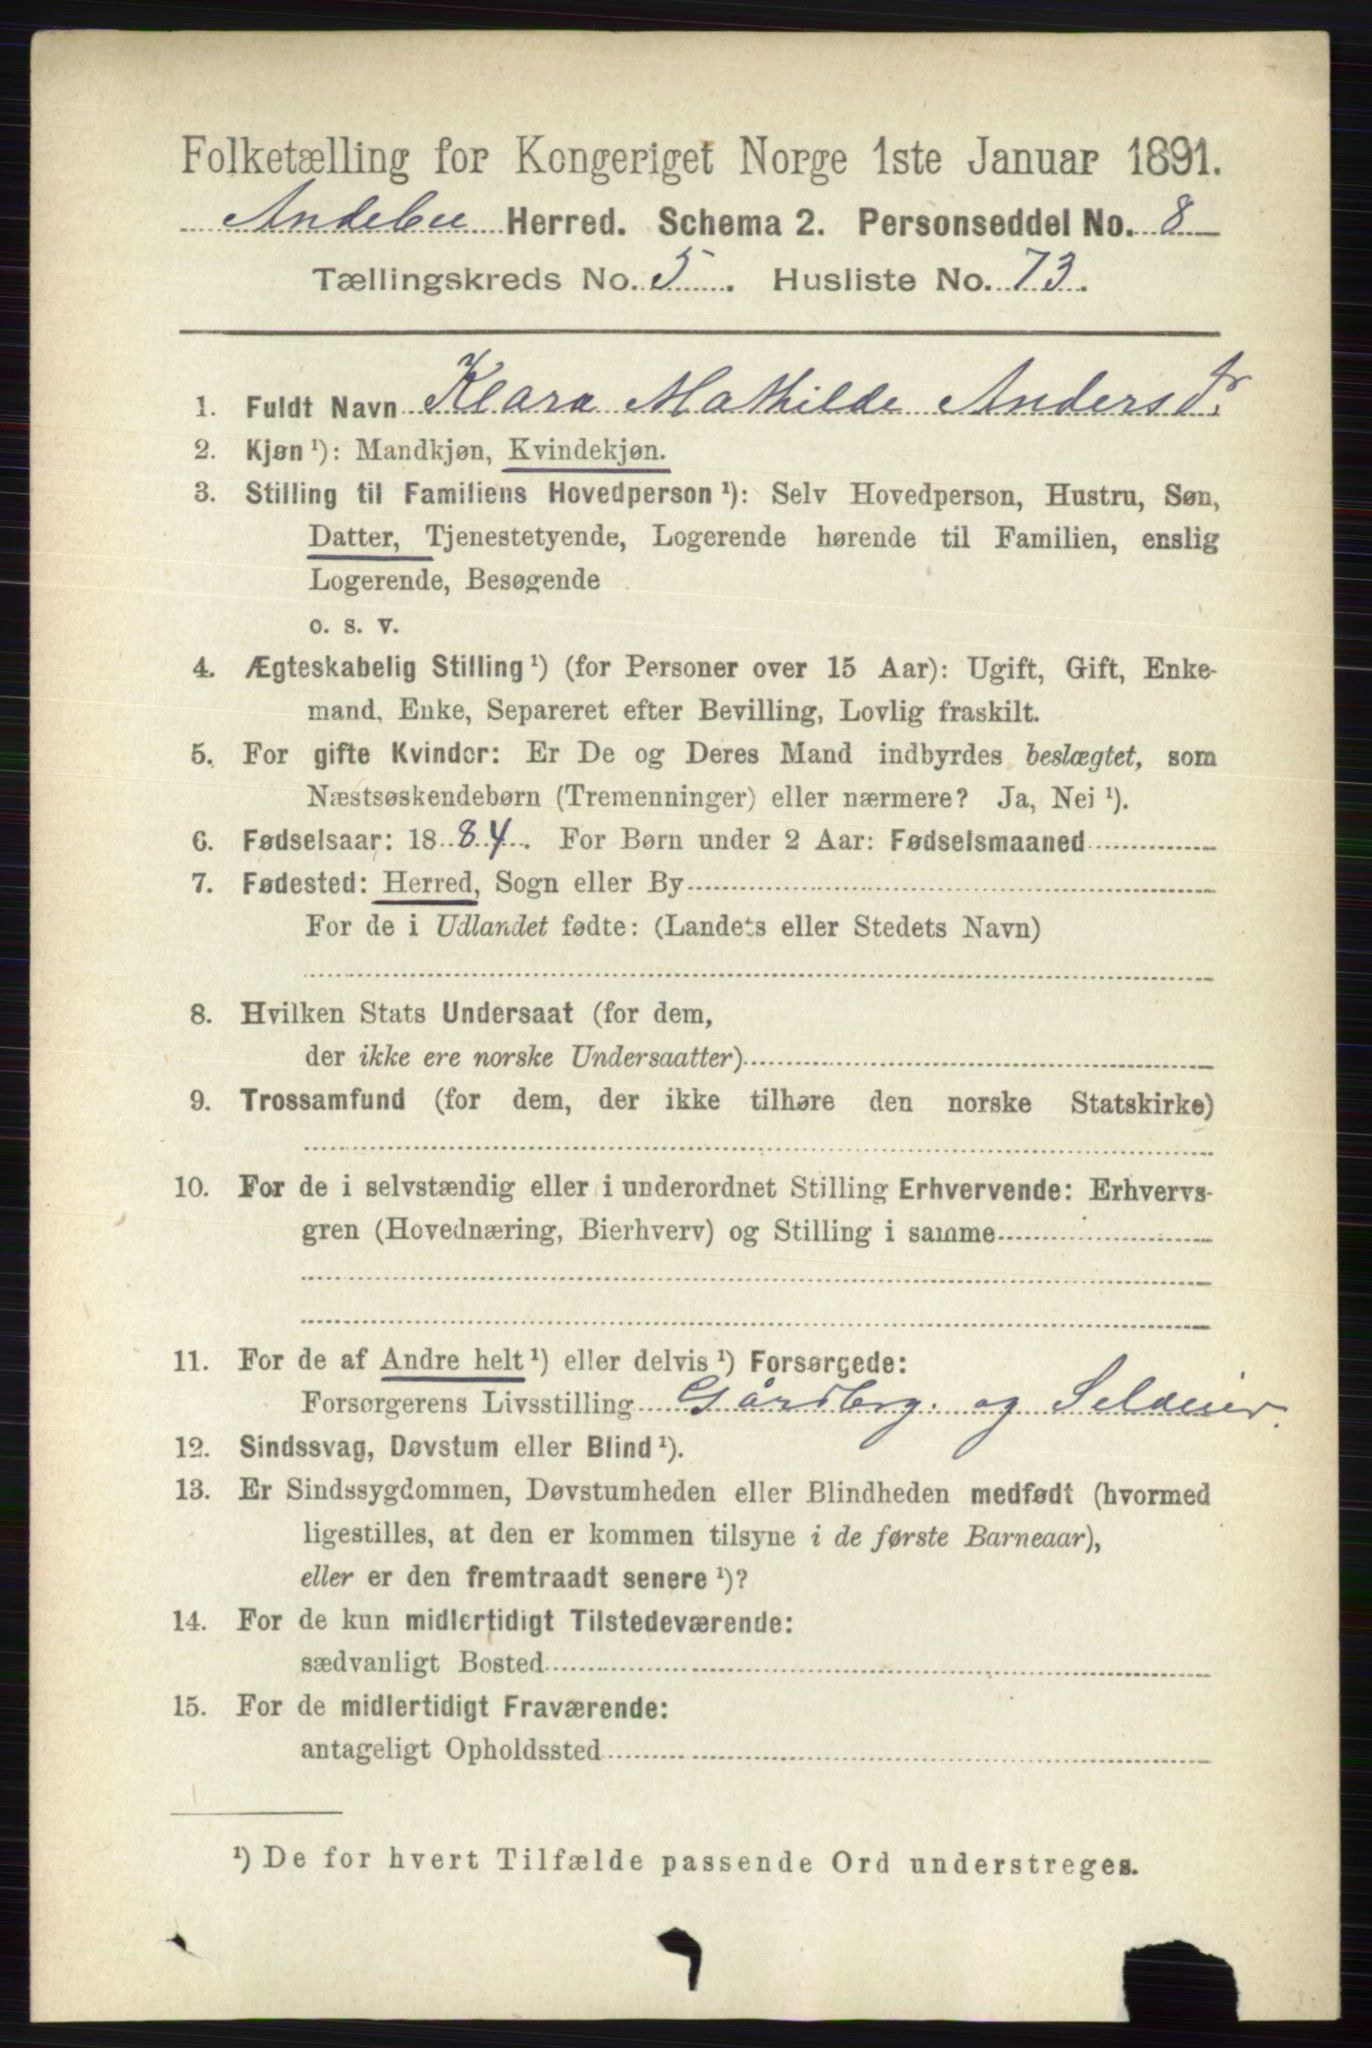 Folketælling for Kongeriget Norge 1ste Januar 1891.
Andebu Herred. Schema 2. Personseddel No. 8
Tællingskreds No. 5. Husliste No. 73.
1. Fuldt Navn Klara Mathilde Andersdr
2. Kjøn ¹): Mandkjøn, Kvindekjøn.
3. Stilling til Familiens Hovedperson ¹): Selv Hovedperson, Hustru, Søn,
Datter, Tjenestetyende, Logerende hørende til Familien, enslig
Logerende, Besøgende
o. s. v.
4. Ægteskabelig Stilling ¹) (for Personer over 15 Aar): Ugift, Gift, Enke-
mand, Enke, Separeret efter Bevilling, Lovlig fraskilt.
5. For gifte Kvinder: Er De og Deres Mand indbyrdes beslægtet, som
Næstsøskendebørn (Tremenninger) eller nærmere? Ja, Nei ¹).
6. Fødselsaar: 1884. For Børn under 2 Aar: Fødselsmaaned
7. Fødested: Herred, Sogn eller By
For de i Udlandet fødte: (Landets eller Stedets Navn)
8. Hvilken Stats Undersaat (for dem,
der ikke ere norske Undersaatter)
9. Trossamfund (for dem, der ikke tilhøre den norske Statskirke)
10. For de i selvstændig eller i underordnet Stilling Erhvervende: Erhvervs-
gren (Hovednæring, Bierhverv) og Stilling i samme
11. For de af Andre helt ¹) eller delvis ¹) Forsørgede:
Forsørgerens Livsstilling Gårdbrg. og Seleier
12. Sindssvag, Døvstum eller Blind ¹).
13. Er Sindssygdommen, Døvstumheden eller Blindheden medfødt (hvormed
ligestilles, at den er kommen tilsyne i de første Barneaar),
eller er den fremtraadt senere ¹)?
14. For de kun midlertidigt Tilstedeværende:
sædvanligt Bosted
15. For de midlertidigt Fraværende:
antageligt Opholdssted
¹) De for hvert Tilfælde passende Ord understreges.